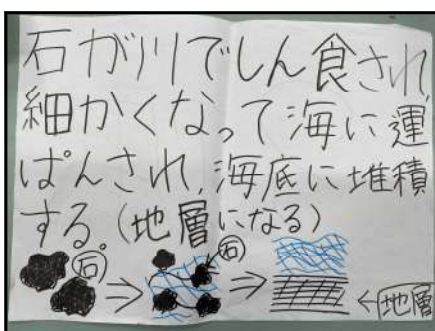 石が川でしん食され、
細かくなって海に運
ぱんされ、海底に堆積
する。(地層になる)
石
石
地層